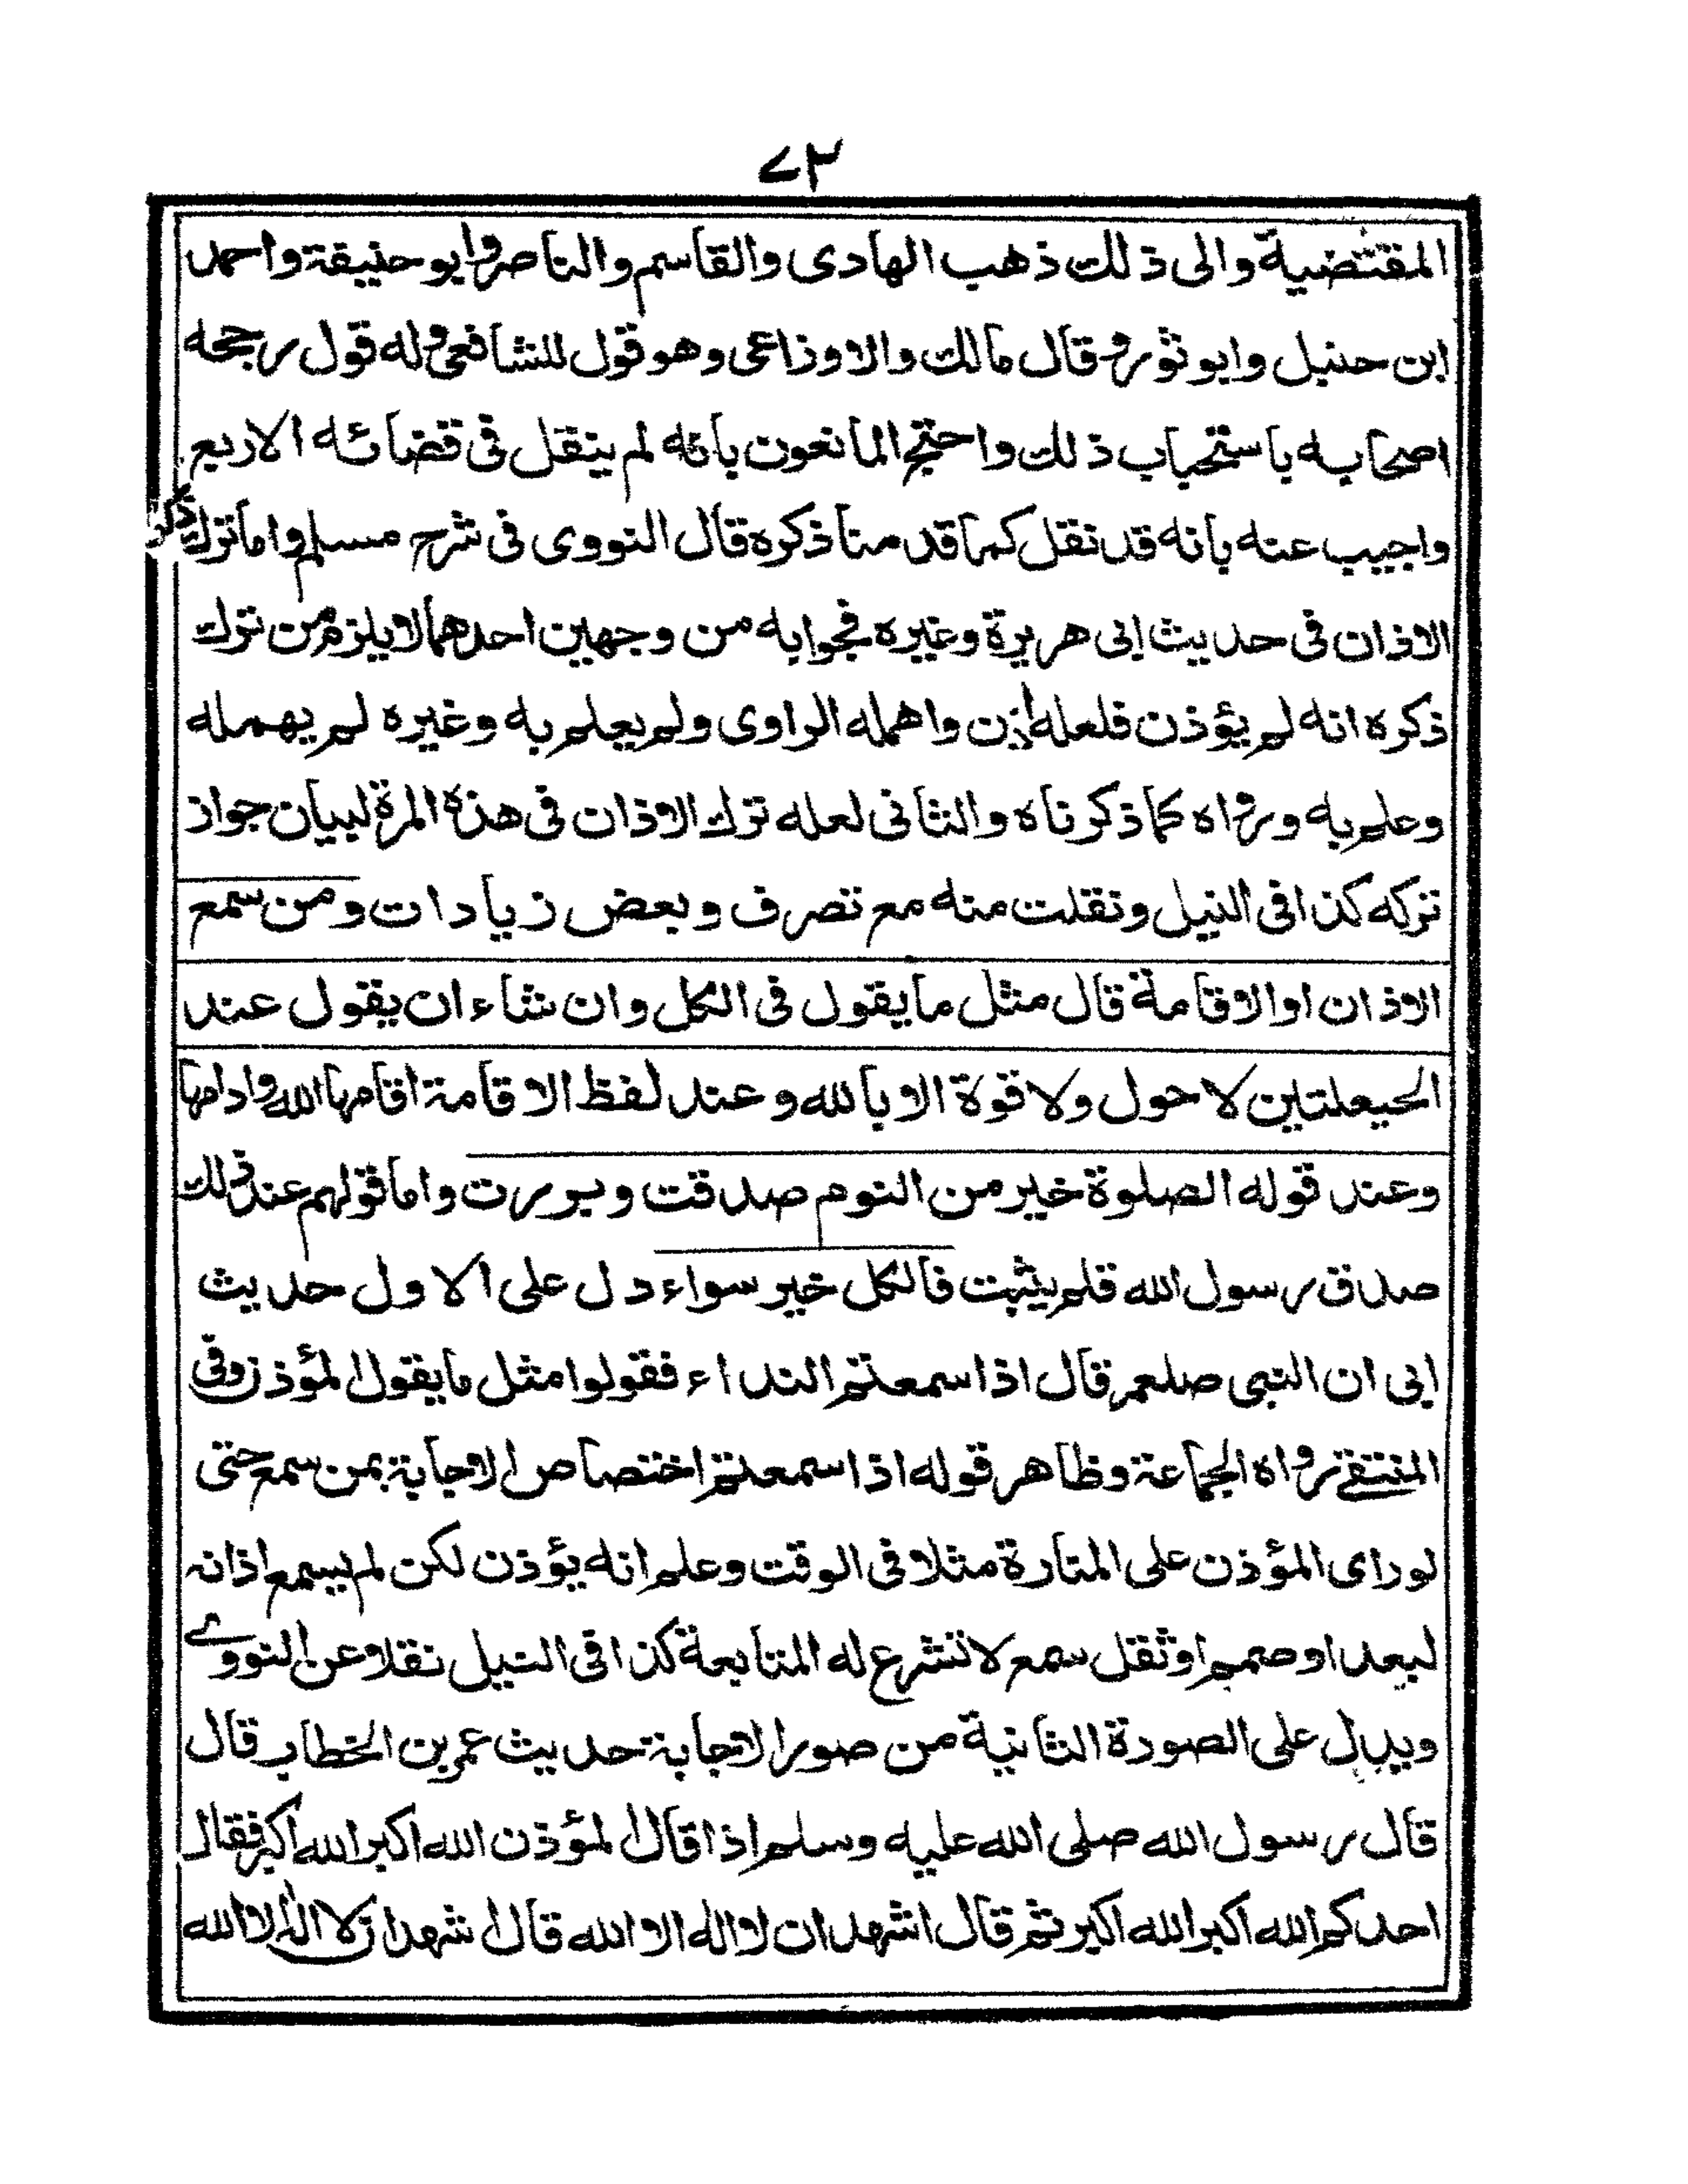 ٧٣
المقتضية والى ذلك ذهب الهادى والقاسم والناصر وابو حنيفة واحمد
ابن حنبل وابو ثور وقال مالك والاوزاعى وهو قول للشافعى وله قول رجحه
اصحابه باستحباب ذلك واحتج المانعون بانه لم ينقل فى قضائه الاربع
واجيب عنه بانه قد نقل كما قد منا ذكره قال النووى فى شرح مسلم واما ترك ذكر
الاذان فى حديث ابى هريرة وغيره فجوابه من وجهين احدهما لا يلزم من ترك
ذكره انه لم يؤذن فلعله اذن واهمله الراوى ولم يعلم به وغيره لم يهمله
وعلم به ورواه كما ذكرناه والثانى لعله ترك الاذان فى هذه المرة لبيان جواز
تركه كذا فى النيل ونقلت منه مع تصرف وبعض زيادات ومن سمع
الاذان او الاقامة قال مثل ما يقول فى الكل وان شاء ان يقول عند
الحيعلتين لا حول ولا قوة الا بالله وعند لفظ الاقامة اقامها الله وادامها
وعند قوله الصلوة خير من النوم صدقت وبررت واما قولهم عند ذلك
صدق رسول الله فلم يثبت فالكل خير سواء دل على الاول حديث
ابى ان النبى صلعم قال اذا سمعتم النداء فقولوا مثل ما يقول المؤذن وفى
المنتقے رواه الجماعة وظاهر قوله اذا سمعتم اختصاص الاجابة بمن سمع حتى
لو راى المؤذن على المنارة مثلا فى الوقت وعلم انه يؤذن لكن لم يسمع اذانه
لبعد او صمم او ثقل سمع لا تشرع له المتابعة كذا فى النيل نقلا عن النووے
ويدل على الصورة الثانية من صور الاجابة حديث عمر بن الخطاب قال
قال رسول الله صلى الله عليه وسلم اذا قال المؤذن الله اكبر الله اكبر فقال
احدكم الله اكبر الله اكبر ثم قال اشهد ان لا اله الا الله قال اشهد ان لا اله الا الله